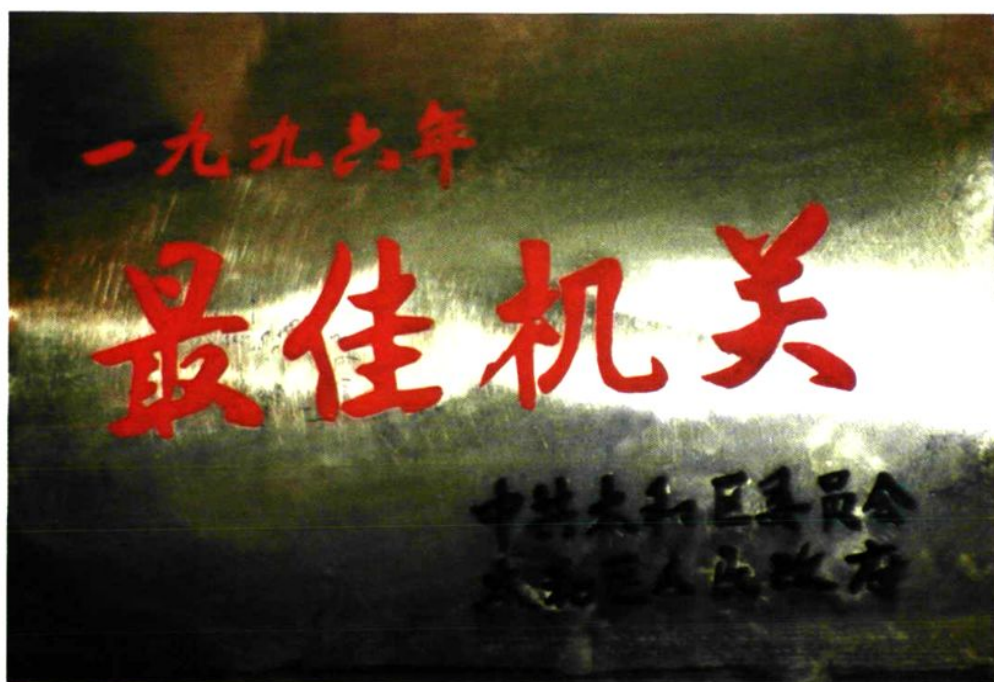 一九九六年
最佳机关
中共太和区委员会
太和区人民政府